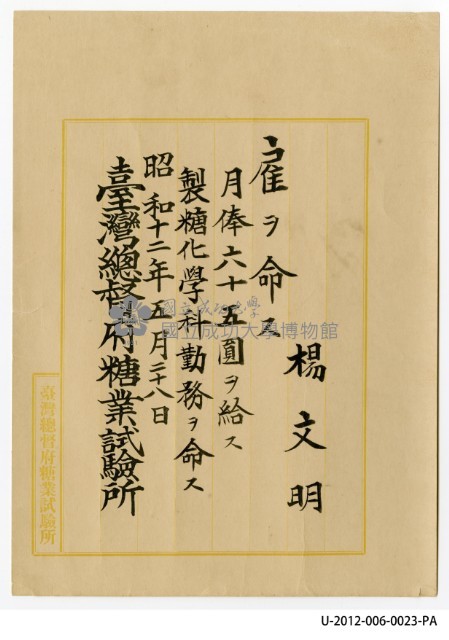 楊文明
雇ヲ命ス
月俸六十五圓ヲ給ス
製糖化學科勤務ヲ命ス
昭和十二年五月二十八日
臺灣總督府糖業試驗所
臺灣總督府糖業試驗所
國立成功大學
國立成功大學博物館
U-2012-006-0023-PA